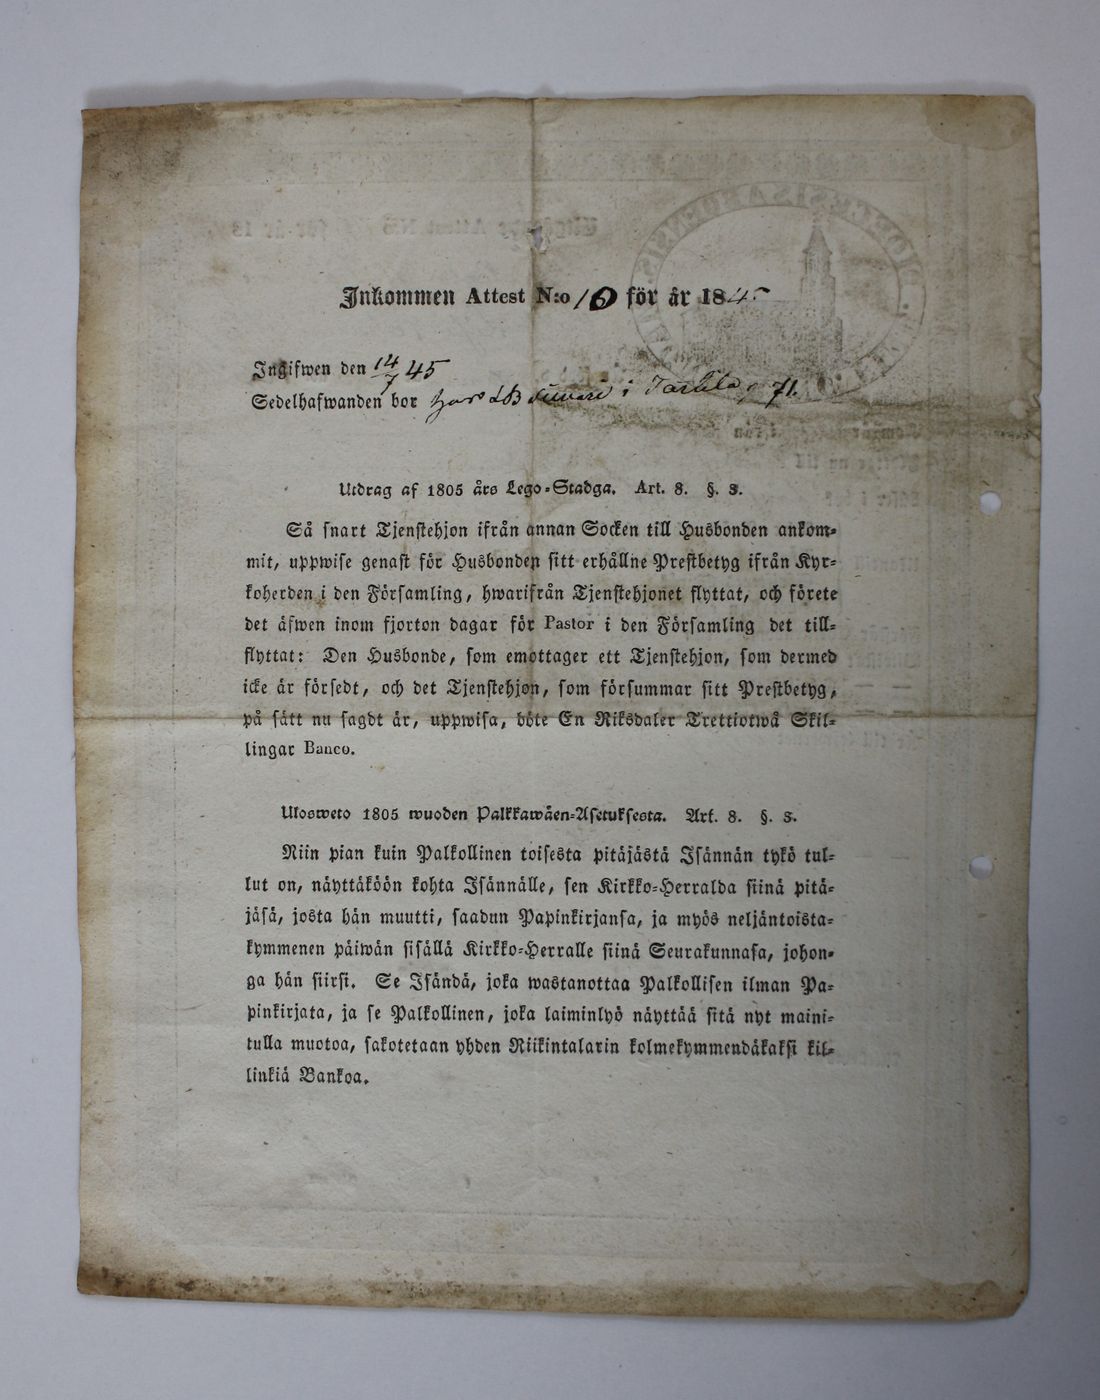 Inkommen Attest N:o 10 för år 1845
Ingifwen den 14/7 45
Sedelhafwanden bor hos i
Utdrag af 1805 års Lego-Stadga. Art. 8. §. 3.
Så snart Tjenstehjon ifrån annan Socken till Husbonden ankom-
mit, uppwise genast för Husbonden sitt erhållne Prestbetyg ifrån Kyr-
koherden i den Församling, hwarifrån Tjenstehjonet flyttat, och förete
det äfwen inom fjorton dagar för Pastor i den Församling det till-
flyttat: Den Husbonde, som emottager ett Tjenstehjon, som dermed
icke är försedt, och det Tjenstehjon, som försummar sitt Prestbetyg,
på sätt nu sagdt är, uppwisa, böte En Riksdaler Trettiotwå Skil-
lingar Banco.
Ulosweto 1805 wuoden Palkkawäen-Asetuksesta. Art. 8. §. 3.
Niin pian kuin Palkollinen toisesta pitäjästä Isännän tykö tul-
lut on, näyttäköön kohta Isännälle, sen Kirkko-Herralda siinä pitä-
jäsä, josta hän muutti, saadun Papinkirjansa, ja myös neljäntoista-
kymmenen päiwän sisällä Kirkko-Herralle siinä Seurakunnasa, johon-
ga hän siirsi. Se Isändä, joka wastanottaa Palkollisen ilman Pa-
pinkirjata, ja se Palkollinen, joka laiminlyö näyttää sitä nyt maini-
tulla muotoa, sakotetaan yhden Riikintalarin kolmekymmendäkaksi kil-
linkiä Bankoa.